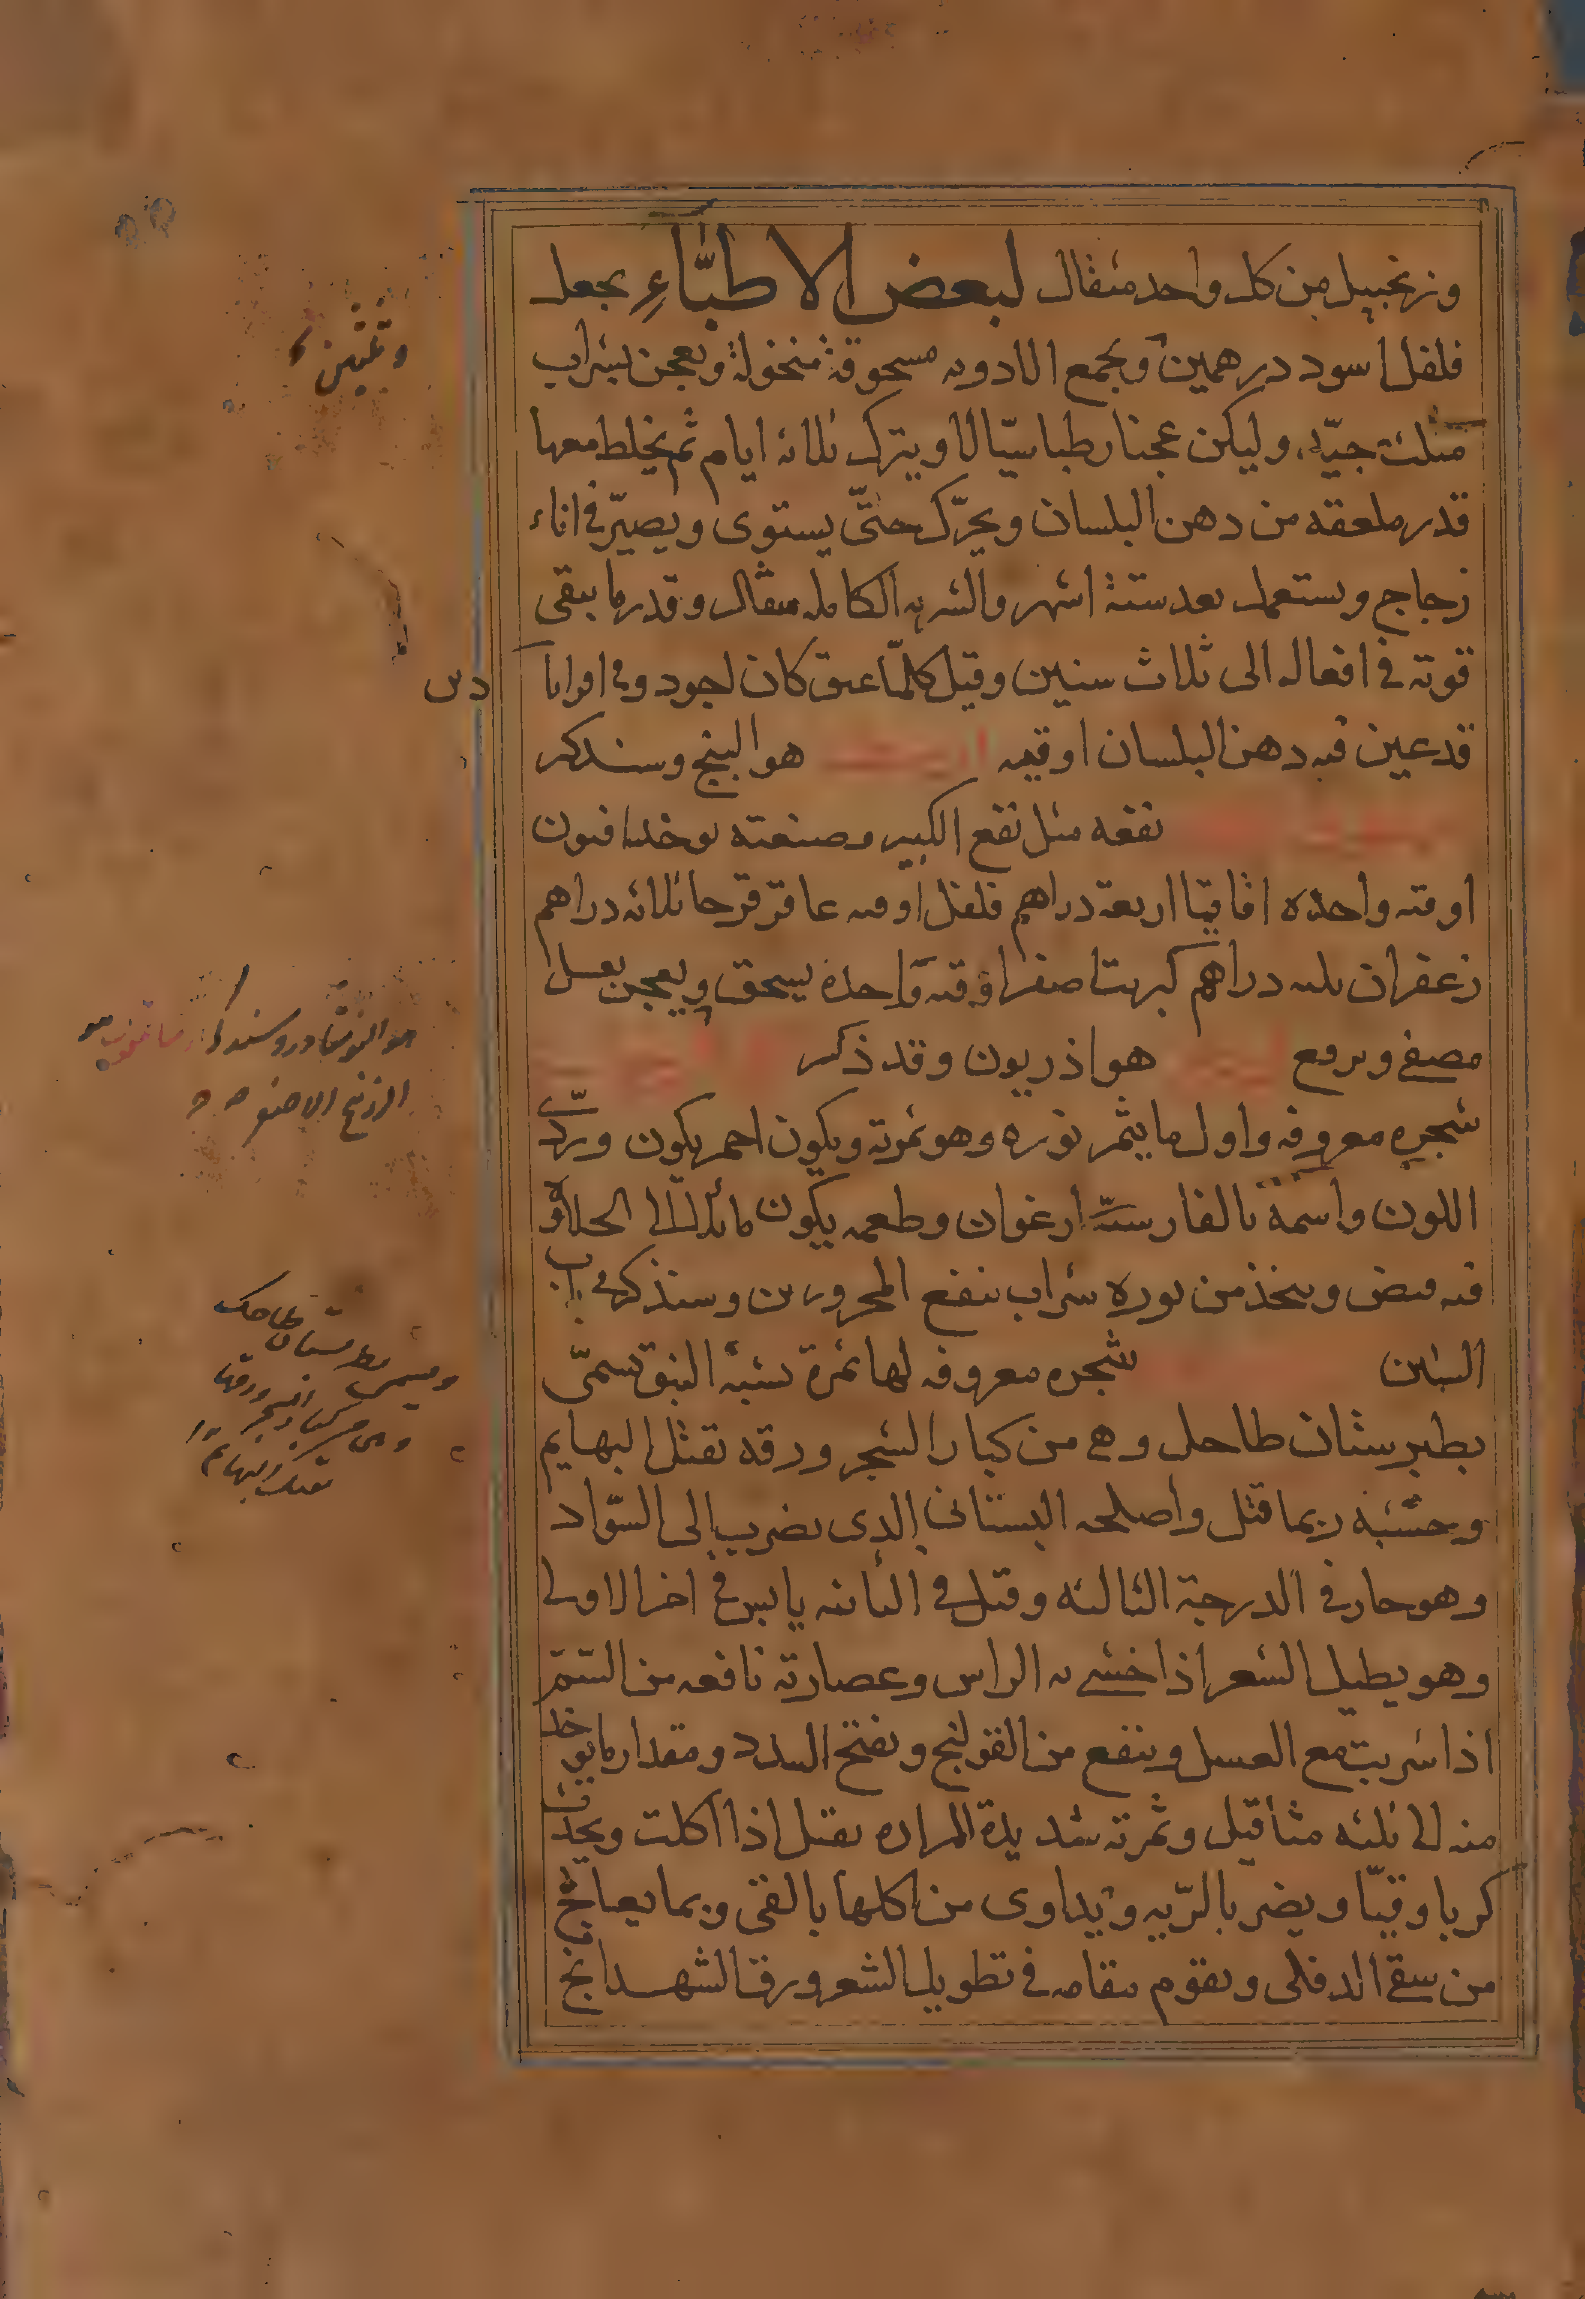 وزنجبيل من كل واحد مثقال لبعض الاطبّاءِ يجعل
فلفل اسود درهمين ويجمع الادويه مسحوقة منخولة ويعجن بشراب
مثلث جيّد وليكن عجنا رطبا سيّالا ويترك ثلاثه ايام ثم يخلط معها
قدر ملعقه من دهن البلسان ويحرّك حتّى يستوى ويصيّر فى اناء
زجاج ويستعمل بعد ستة اشهر والشربه الكامله مثقال وقدر ما يبقى
قوته فى افعاله الى ثلاث سنين وقيل كلمّا عتق كان اجود وفى اقرابا
دين
قد عين فيه دهن البلسان اوقيه هو البنج وسنذكر
نفعه مثل نفع الكبير وصنعته يوخذ افيون
اوقيه واحده اقاقيا اربعة دراهم فلفل اوقيه عاقر قرحا ثلاثه دراهم
زعفران ثلثه دراهم كبريت اصفر اوقيه واحدة يسحق ويعجن بعسل
مصفى ويرفع هو اذريون وقد ذكر
شجره معروفه واول ما يثمر نوره وهو ثمرته ويكون احمر يكون ورديّ
اللون واسمه بالفارسيّة ارغوان وطعمه يكون مائلا الى الحلاوة
فيه قبض ويتخذ من نوره شراب ينفع المحرورين وسنذكر فى باب
الشين شجره معروفه لها ثمرة تشبه النبق تسمّى
بطبرستان طاحل وهى من كبار الشجر ورقه تقتل البهايم
وخشبه ربما قتل واصلحه البستانى الذى يضرب الى السّواد
وهو حار فى الدرجة الثالثه وقيل فى الثانيه يابس فى اخر الاولى
وهو يطيل الشعر اذا حشى به الراس وعصارته نافعه من السّمّ
اذا شربت مع العسل وينفع من القولنج ويفتح السدد ومقدار ما يوخذ
منه الى ثلثه مثاقيل وثمرته شديدة المراره يقتل اذا اكلت ويحدث
كربا وقيّا ويضر بالرّيه ويداوى من اكلها بالقى وبما يعالج
من سقى الدفلى ويقوم مقامه فى تطويل الشعر ورق الشهدانج
هو النوشادر وسنذكر
الزرنيخ الاصفر